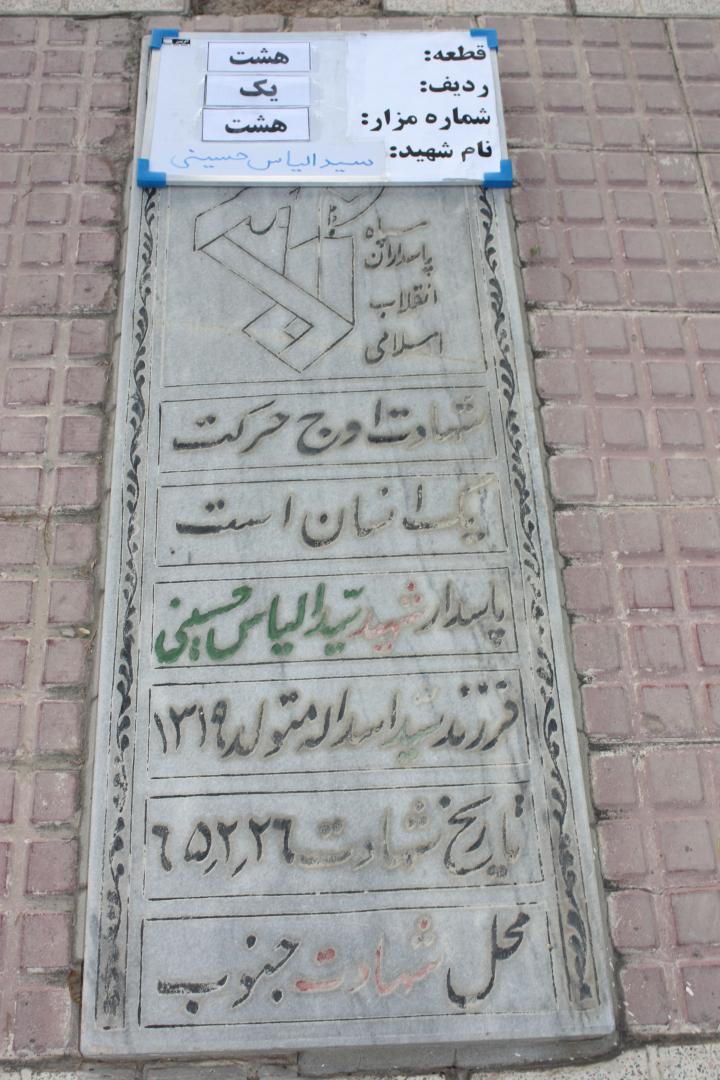 قطعه: هشت
ردیف: یک
شماره مزار: هشت
نام شهید: سید الیاس حسینی
سپاه
پاسداران
انقلاب
اسلامی
شهادت اوج حرکت
یک انسان است
پاسدار شهید سیّد الیاس حسینی
فرزند سیّد اسداله متولد ۱۳۱۹
تاریخ شهادت ۶۵٫۲٫۲۶
محل شهادت جنوب